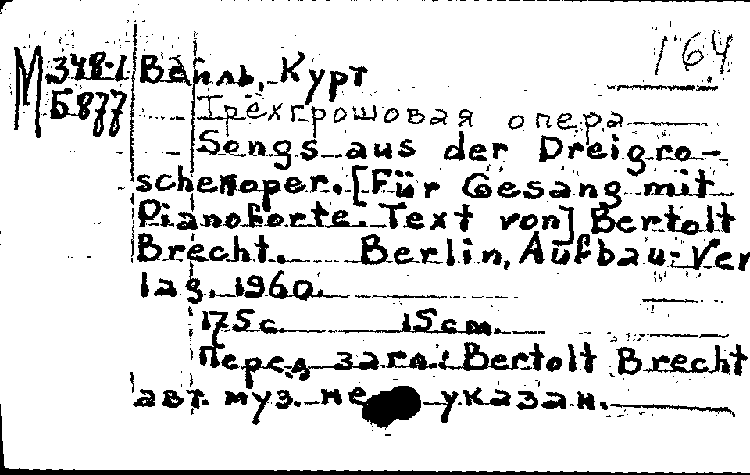 М 348-1 Вайль, Курт 164
Б877 Трёхгрошовая опера
Songs aus der Dreigro-
schenoper. [Für Gesang mit
Pianoforte. Text von] Bertolt
Brecht. Berlin, Aufbau-Ver
lag. 1960.
175 с. 15 см.
Перед загл.: Bertolt Brecht
авт. муз. не указан.